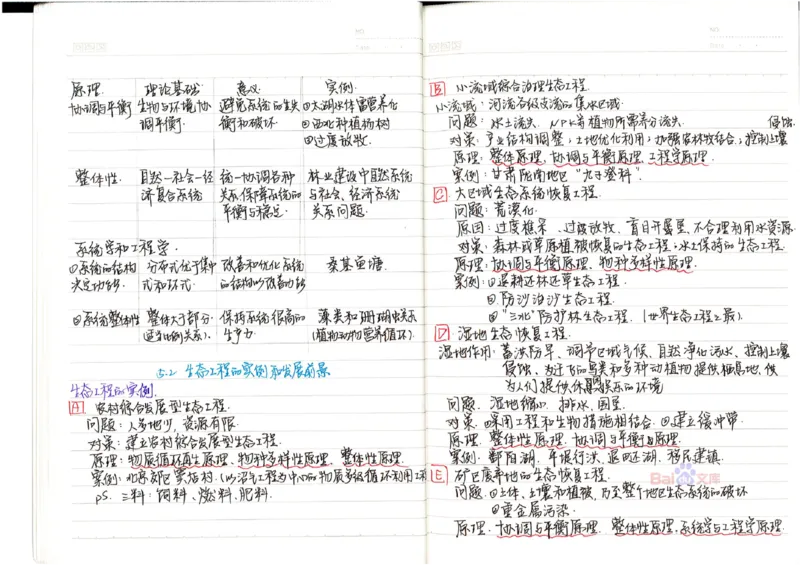 原理 理论基础 意义 实例
协调与平衡 生物与环境协 避免系统的失 ①太湖水体富营养化
调平衡 衡和破坏 ②西北种植树
③过度放牧
整体性 自然—社会—经 统一协调各种 林业建设中自然系统
济复合系统 关系,保障系统的 与社会、经济系统
平衡与稳定 关系问题
系统学和工程学
①系统的结构 分布式优于集中 改善和优化系统 桑基鱼塘
决定功能 式和环式 的结构以改善功能
②系统整体性 整体大于部分 保持系统很高的 藻类和珊瑚虫关系
(适当比例关系) 生产力 (植物动物营养循环)
5.2 生态工程的实例和发展前景
生态工程的实例
A 农村综合发展型生态工程
问题:人多地少,资源有限
对策:建立农村综合发展型生态工程
原理:物质循环再生原理、物种多样性原理、整体性原理
案例:北京郊区窦店村(以沼气工程为中心的物质多级循环利用工程
ps. 三料:饲料、燃料、肥料
B 小流域综合治理生态工程
小流域:河流各级支流的集水区域
问题:水土流失、N P K等植物所需养分流失 侵蚀
对策:产业结构调整;土地优化利用;加强农林牧结合;控制土壤
原理:整体性原理、协调与平衡原理、工程学原理
案例:甘肃陇南地区“九子登科”
C 大区域生态系统恢复工程
问题:荒漠化
原因:过度樵采、过度放牧、盲目开垦、不合理利用水资源
对策:森林或草原植被恢复的生态工程;水土保持的生态工程
原理:协调与平衡原理、物种多样性原理
案例:①退耕还林还草生态工程
②防沙治沙生态工程
③“三北”防护林生态工程(世界生态工程之最)
D 湿地生态恢复工程
湿地作用:蓄洪防旱、调节区域气候、自然净化污水、控制土壤
侵蚀、为迁飞的鸟类和多种动植物提供栖息地、供
为人们提供休憩娱乐的环境
问题:湿地缩小、排水、围垦
对策:①采用工程和生物措施相结合 ②建立缓冲带
原理:整体性原理、协调与平衡的原理
案例:鄱阳湖、平垸行洪、退田还湖、移民建镇
E 矿区废弃地的生态恢复工程
问题:①土体、土壤和植被,乃至整个地区生态系统的破坏
②重金属污染
原理:协调与平衡原理、整体性原理、系统学与工程学原理
Bai 文库